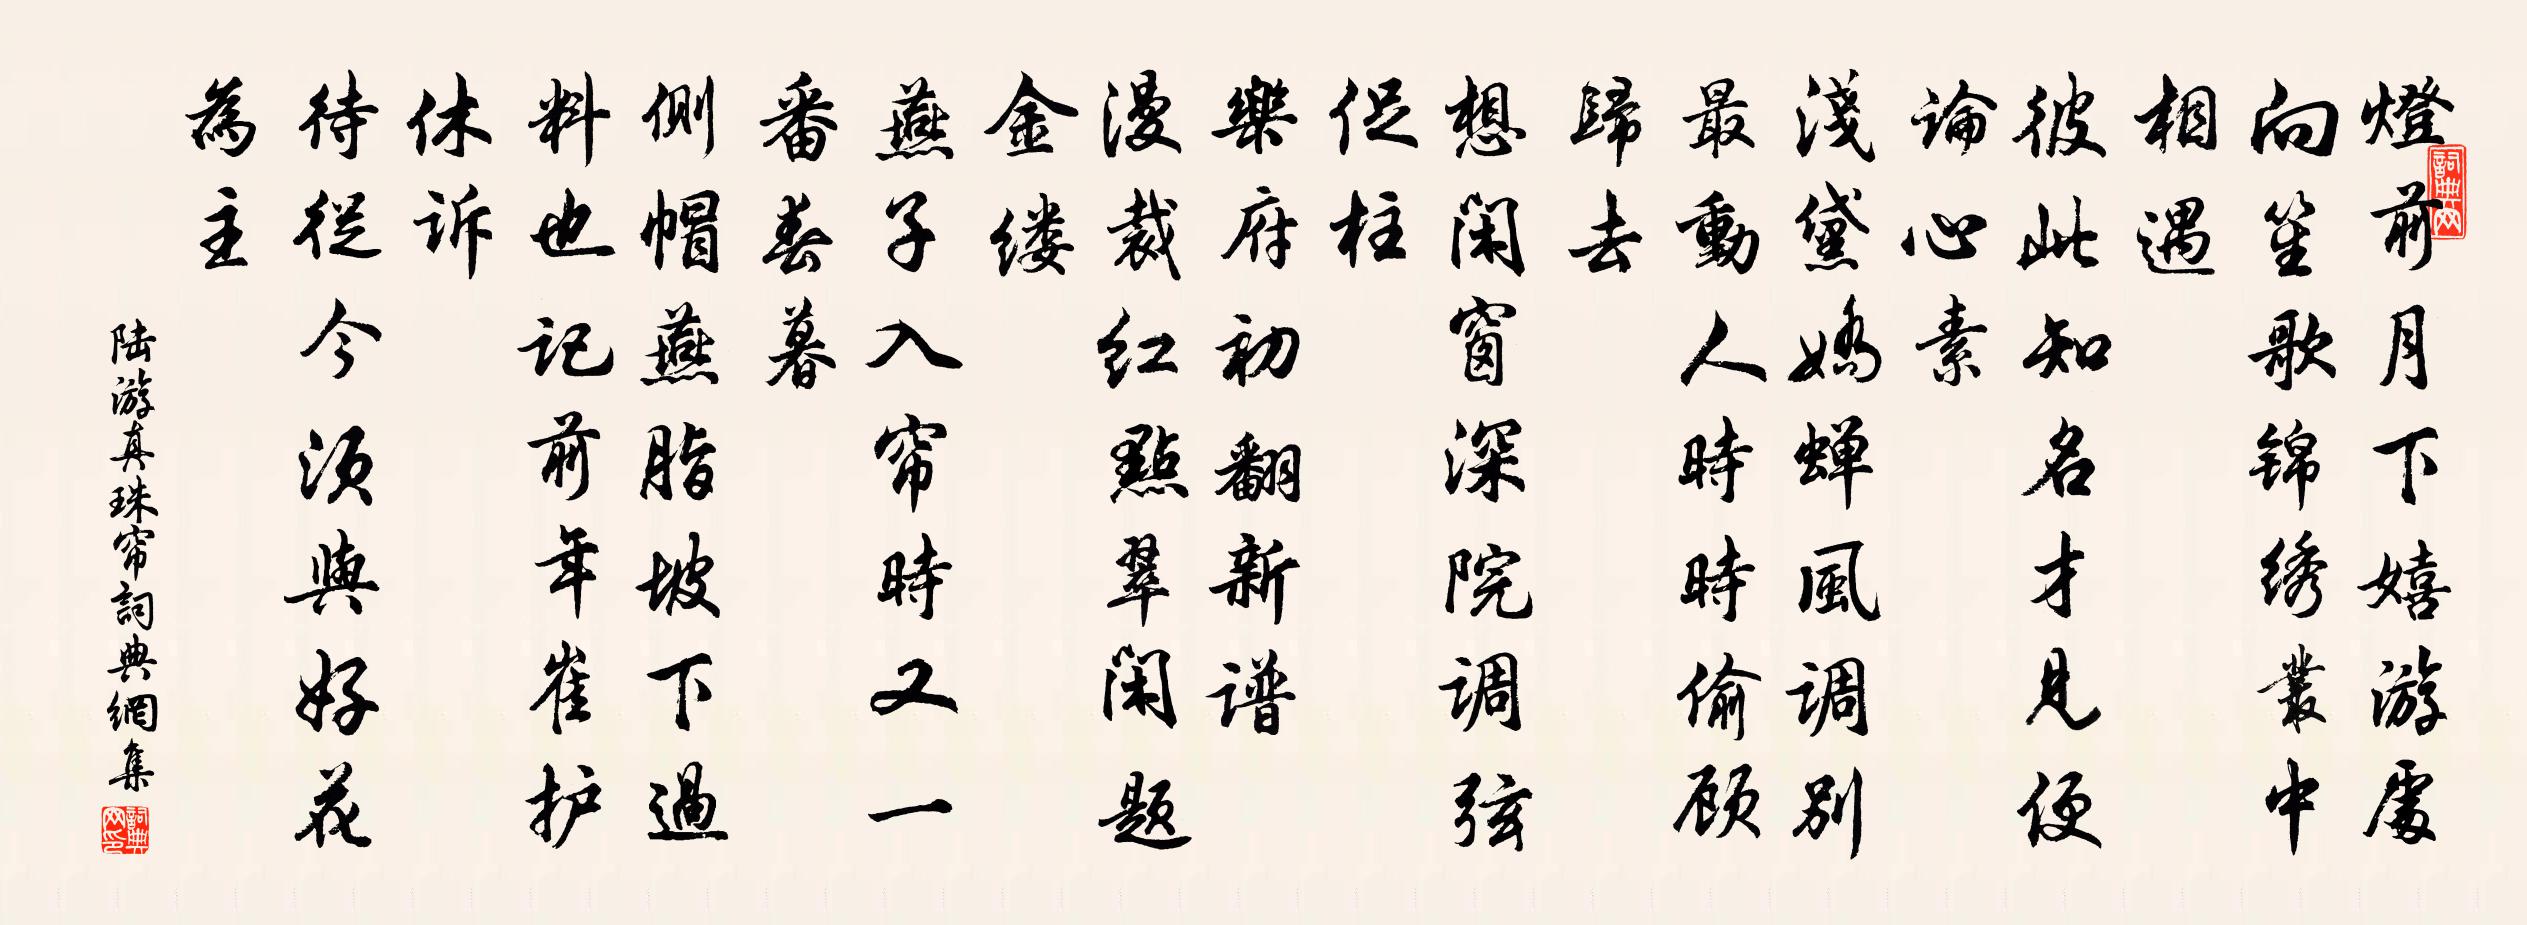 燈前月下嬉游處
向笙歌锦绣叢中
相遇
彼此知名才見便
論心素
淺黛嬌蝉風调别
最動人時時偷顾
歸去
想闲窗深院调弦
促柱
樂府初翻新谱
漫裁红點翠闲题
金缕
燕子入帘時又一
番春暮
側帽燕脂坡下過
料也記前年崔护
休诉
待従今须與好花
為主
陆游真珠帘詞典網集
詞典网
詞典网印